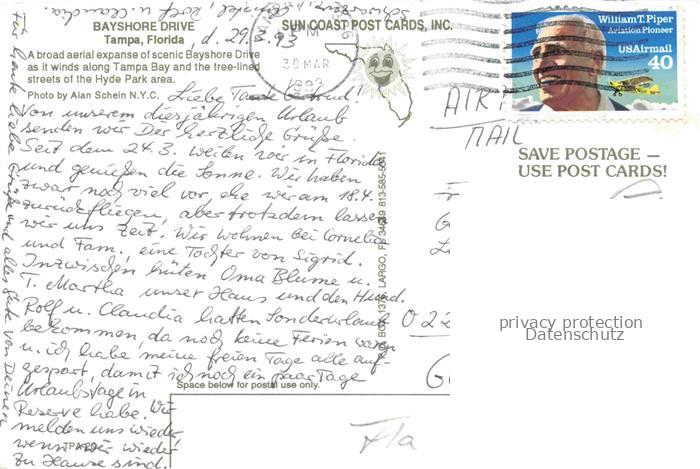 BAYSHORE DRIVE
Tampa, Florida, d. 29.3.93
A broad aerial expanse of scenic Bayshore Drive
as it winds along Tampa Bay and the tree-lined
streets of the Hyde Park area.
Photo by Alan Schein N.Y.C.
SUN COAST POST CARDS, INC.
PM
30 MAR
1993
William T. Piper
Aviation Pioneer
USAirmail
40
AIR
MAIL
SAVE POSTAGE —
USE POST CARDS!
Liebe Tante Gertrud!
Von unserem diesjährigen Urlaub
senden wir Dir herzliche Grüße.
Seit dem 24.3. weilen wir in Florida
und genießen die Sonne. Wir haben
zwar noch viel vor, ehe wir am 18.4.
zurückfliegen, aber trotzdem lassen
wir uns Zeit. Wir wohnen bei Cornelia
und Fam., eine Tochter von Sigrid.
Inzwischen hüten Oma Blume u.
T. Martha unser Haus und den Hund.
Rolf u. Claudia hatten Sonderurlaub
bekommen, da noch keine Ferien waren
u. ich habe meine freien Tage alle auf-
gespart, damit ich noch ein paar Tage
Urlaubstage in
Reserve habe. Wir
melden uns wieder,
wenn wir wieder
zu Hause sind.
Für heute liebe Grüße und alles Gute von Deinen
Rolf u. Claudia.
BOX 1379, LARGO, FL 34649 813-585-5641
022
privacy protection
Datenschutz
Space below for postal use only.
Fla